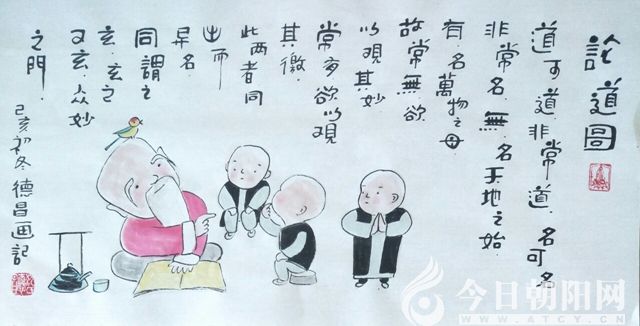 論道圖
道可道非常道名可名
非常名無名天地之始
有名萬物之母
故常無欲
以觀其妙
常有欲以觀
其徼
此两者同
出而
异名
同謂之
玄玄之
又玄众妙
之門
己亥初冬德昌画記
今日朝阳网
WWW.ATCY.CN